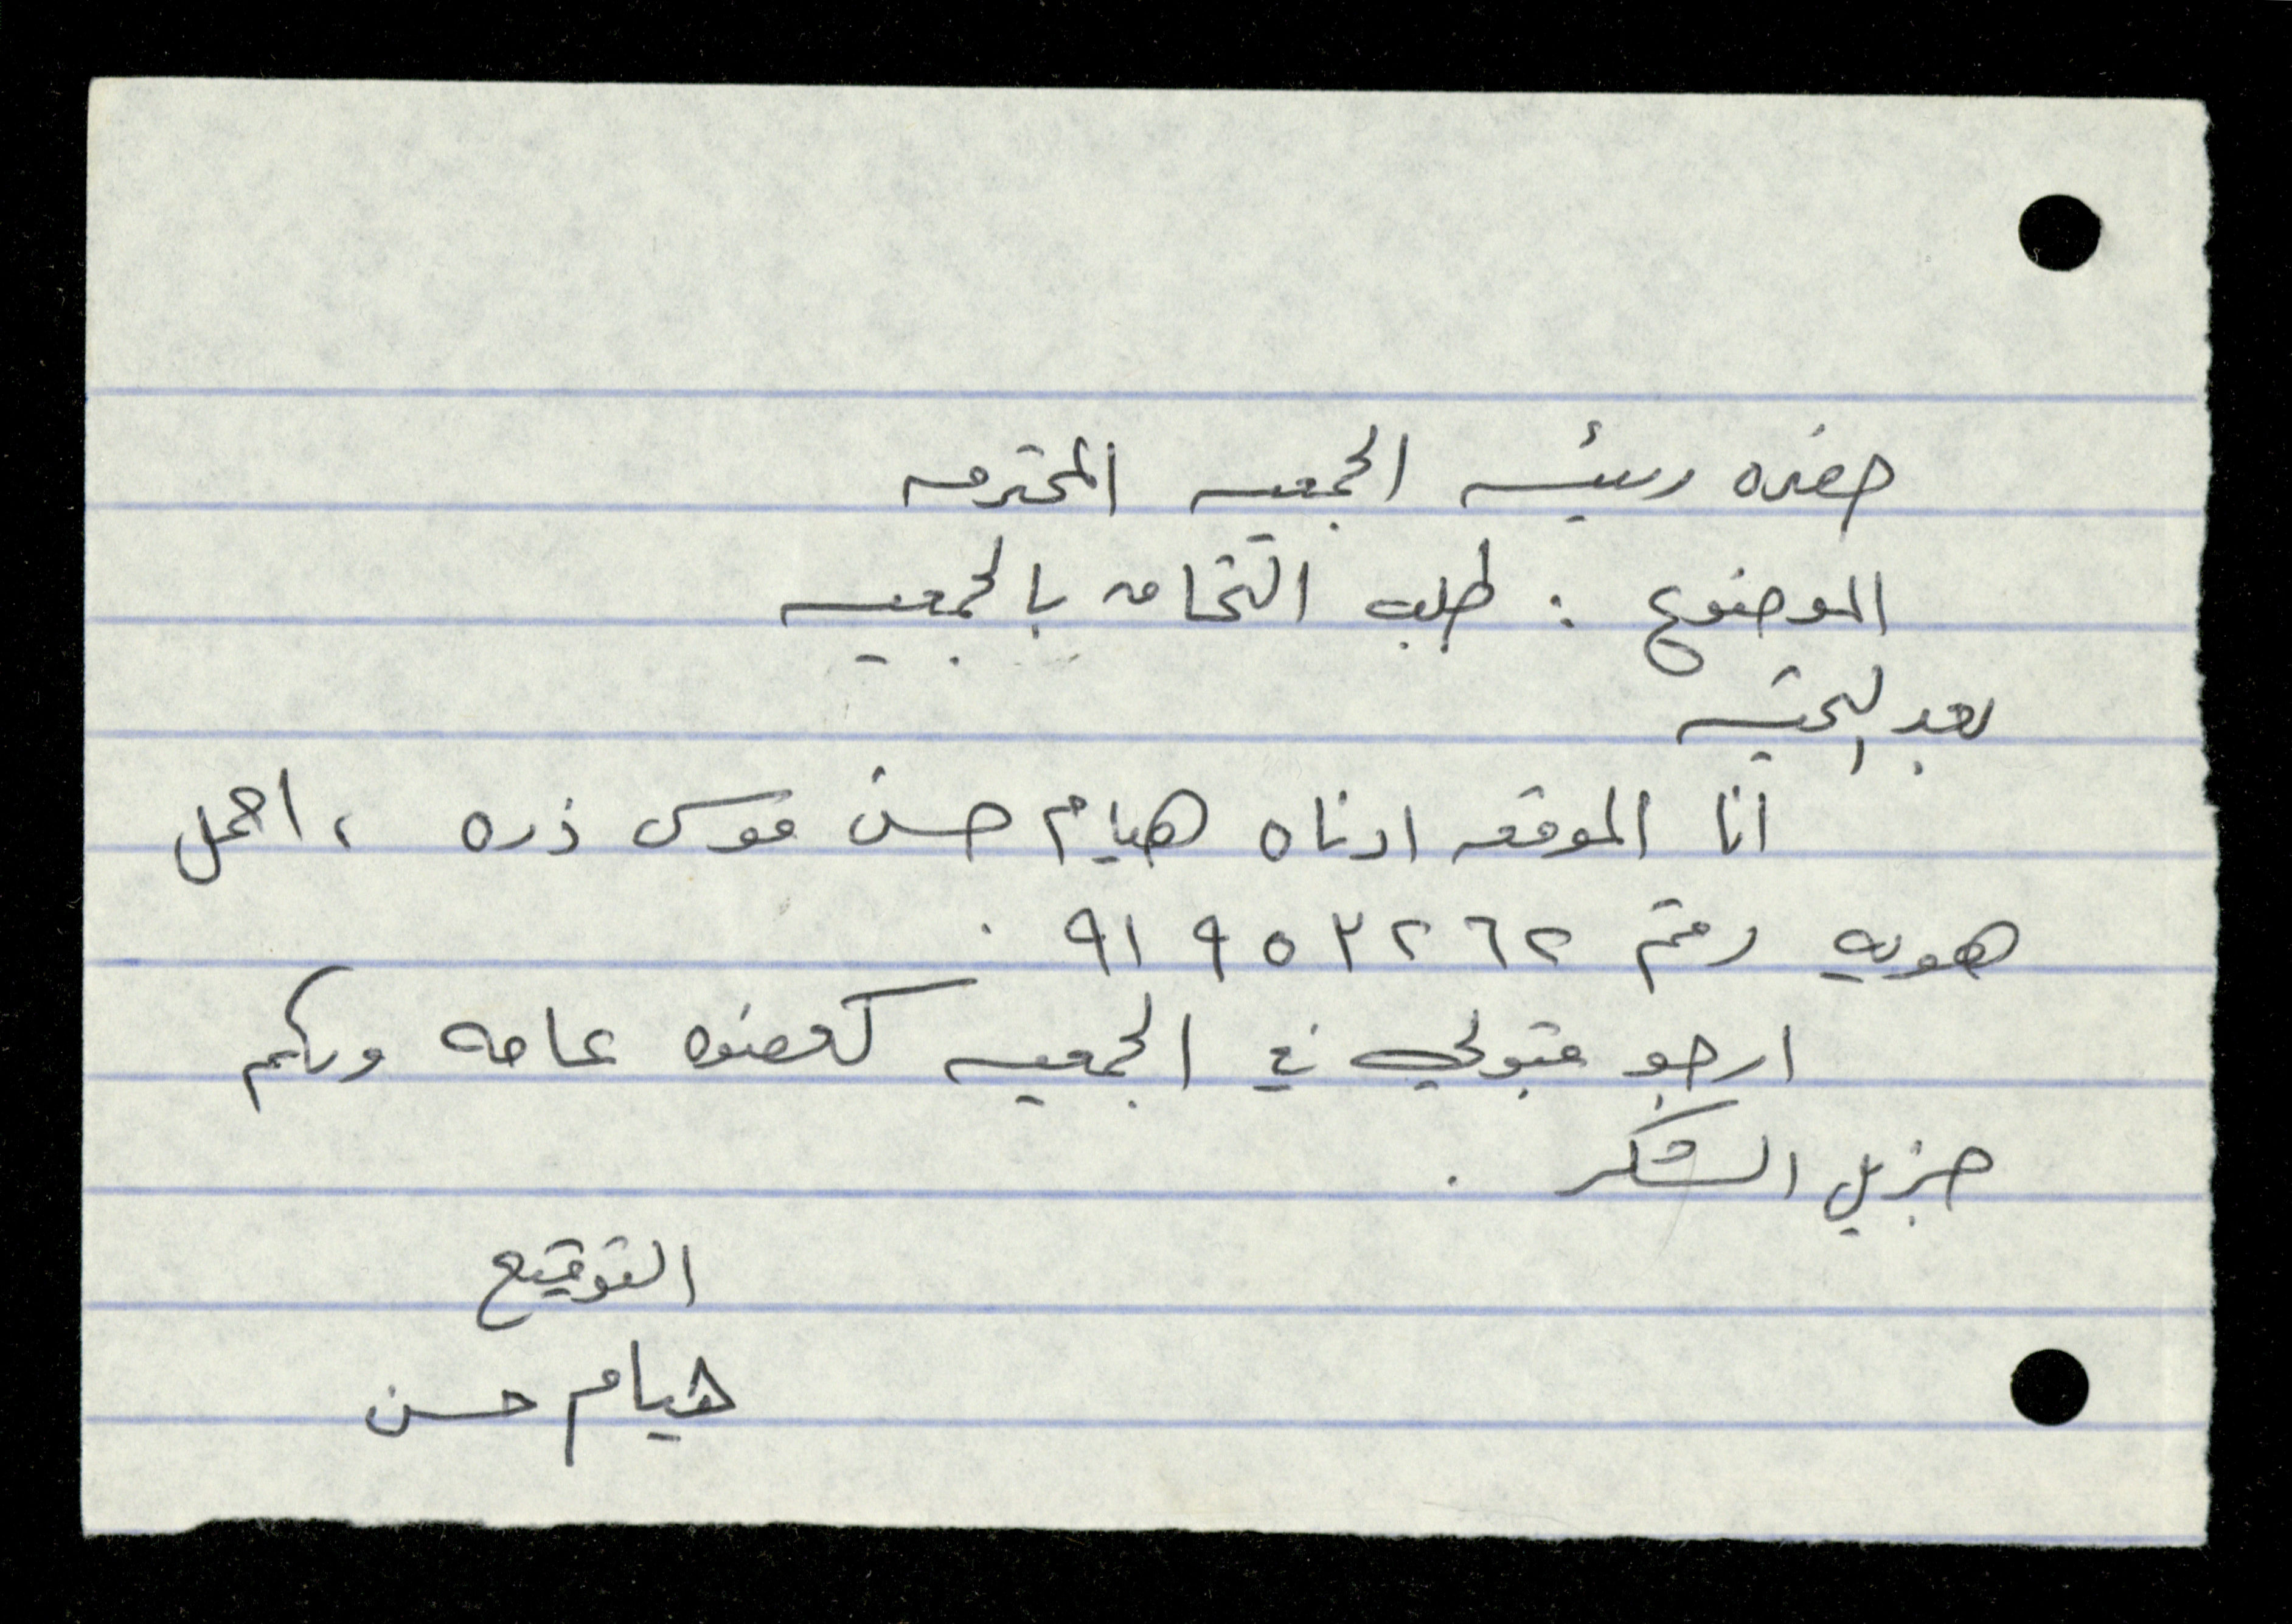 حضره رئيسه الجمعيه المحترمه
الموضوع : طلب التحاق بالجمعيه
بعد التحيه
انا الموقعه ادناه هيام حسن موسى ذره ، احمل
هويه رقم ٩١٩٥٣٢٦٢ .
ارجو قبولي في الجمعيه كعضوه عامه ولكم
جزيل الشكر .
التوقيع
هيام حسن